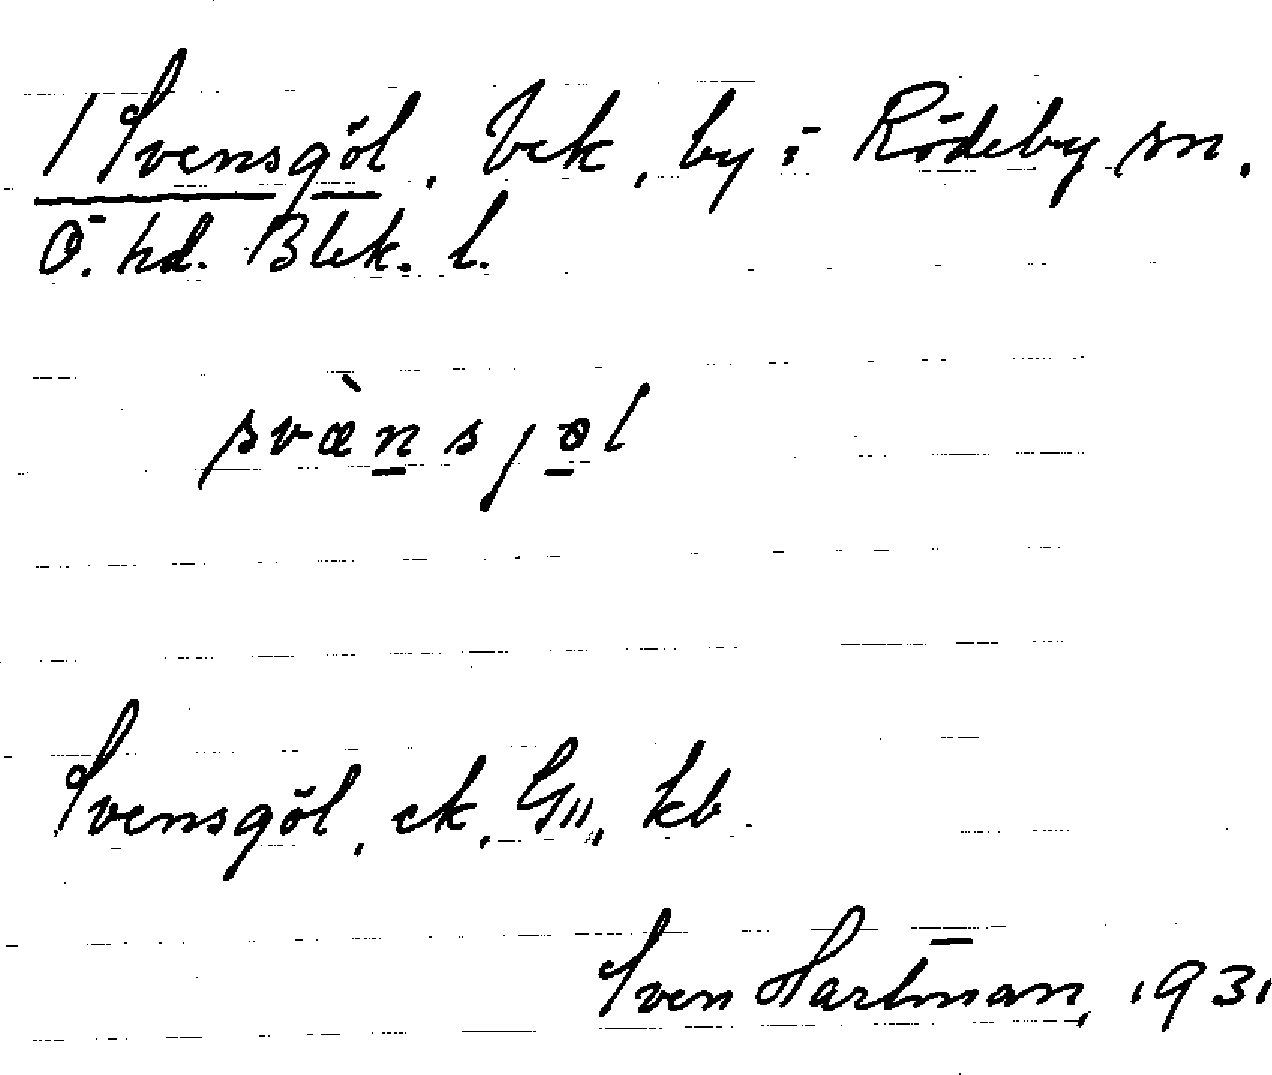 1 Svensgöl, bek, by i Rödeby sn.
Ö. hd. Blek. l.
svæ̀nsjøl
Svensgöl, ek, G11, kb
Sven Hartman, 1931